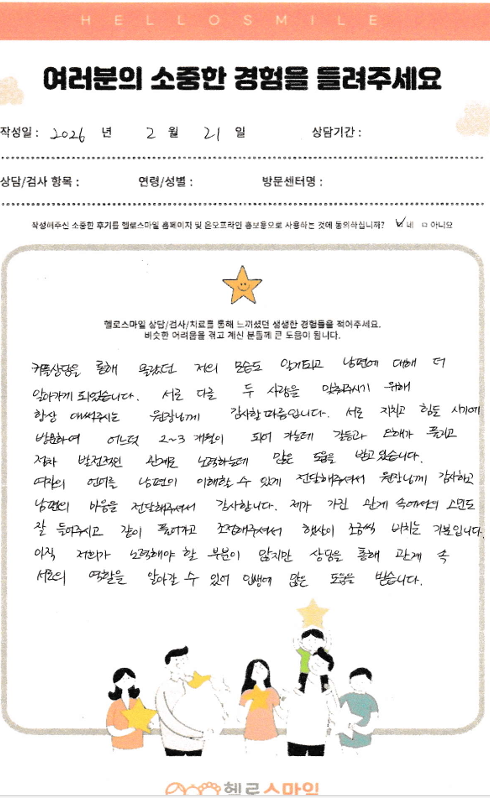 HELLOSMILE
여러분의 소중한 경험을 들려주세요
작성일 : 2026 년 2 월 21 일 상담기간 :
상담/검사 항목 : 연령/성별 : 방문센터명 :
작성해주신 소중한 후기를 헬로스마일 홈페이지 및 온오프라인 홍보용으로 사용하는 것에 동의하십니까? ☑ 네 □ 아니요
헬로스마일 상담/검사/치료를 통해 느끼셨던 생생한 경험들을 적어주세요.
비슷한 어려움을 겪고 계신 분들께 큰 도움이 됩니다.
커플상담을 통해 몰랐던 저의 모습도 알게되고 남편에 대해 더
알아가게 되었습니다. 서로 다른 두 사람을 맞춰주시기 위해
항상 애써주시는 원장님께 감사한 마음입니다. 서로 지치고 힘든 시기에
방문하여 어느덧 2~3 개월이 되어 가는데 갈등과 오해가 풀리고
점차 발전적인 관계로 노력하는데 많은 도움을 받고 있습니다.
여자의 언어를 남편이 이해할 수 있게 전달해주셔서 원장님께 감사하고
남편의 마음을 전달해주셔서 감사합니다. 제가 가진 관계 속에서의
잘 들어주시고 같이 풀어가고 조언해주셔서 조금씩 비치는 기분입니다.
아직 저희가 노력해야 할 부분이 많지만 상담을 통해 관계 속
서로의 역할을 알아갈 수 있어 인생에 많은 도움을 받습니다.
헬로스마일